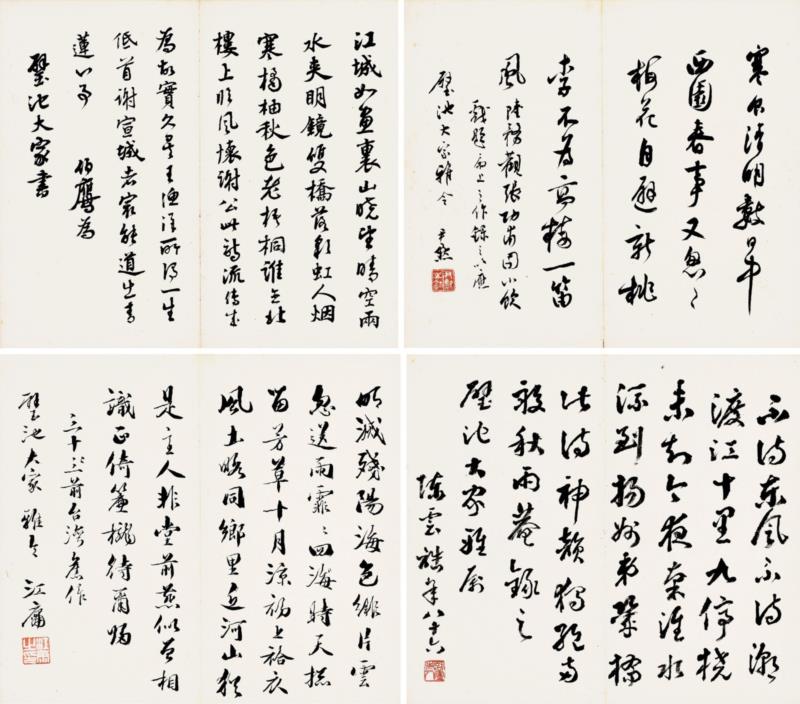 寒食清明數日中
西園春事又怱〻
梅花自避新桃
李不為高樓一笛
風 陸務觀張功甫園小飲
戲題扇上之作錄之以應
璧池大家雅令 尹默
江城如畫裏山晚望晴空兩
水夾明鏡雙橋落彩虹人烟
寒橘柚秋色老梧桐誰念北
樓上臨風懷謝公此詩流傳成
為故實久矣王漁洋所謂一生
低首謝宣城者寔能道出青
蓮心事 伯鷹為
璧池大家書
不待東風不待潮
渡江十里九停橈
未知今夜秦淮水
流到揚州第幾橋
此詩神韻獨絕
秋雨菴錄之
璧池大家雅屬
陳雲誥年八十六
明滅殘陽海色緋片雲
忽送雨霏〻四海時天
留芳草十月涼初上袷衣
風土略同鄉里近河山猶
是主人非堂前燕似曾相
識正倚簾櫳待爾歸
前台灣舊作
璧池大家雅令 江庸